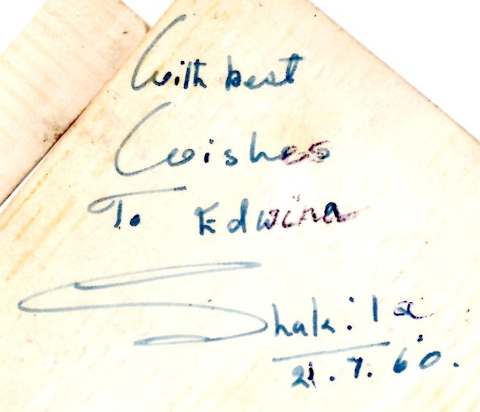 With best
Wishes
To Edwina
Shakila
21.7.60.